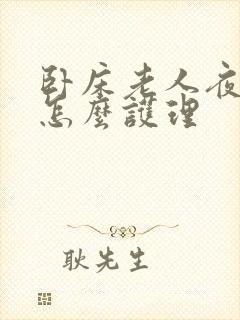 卧床老人夜
怎麼護理
耿先生